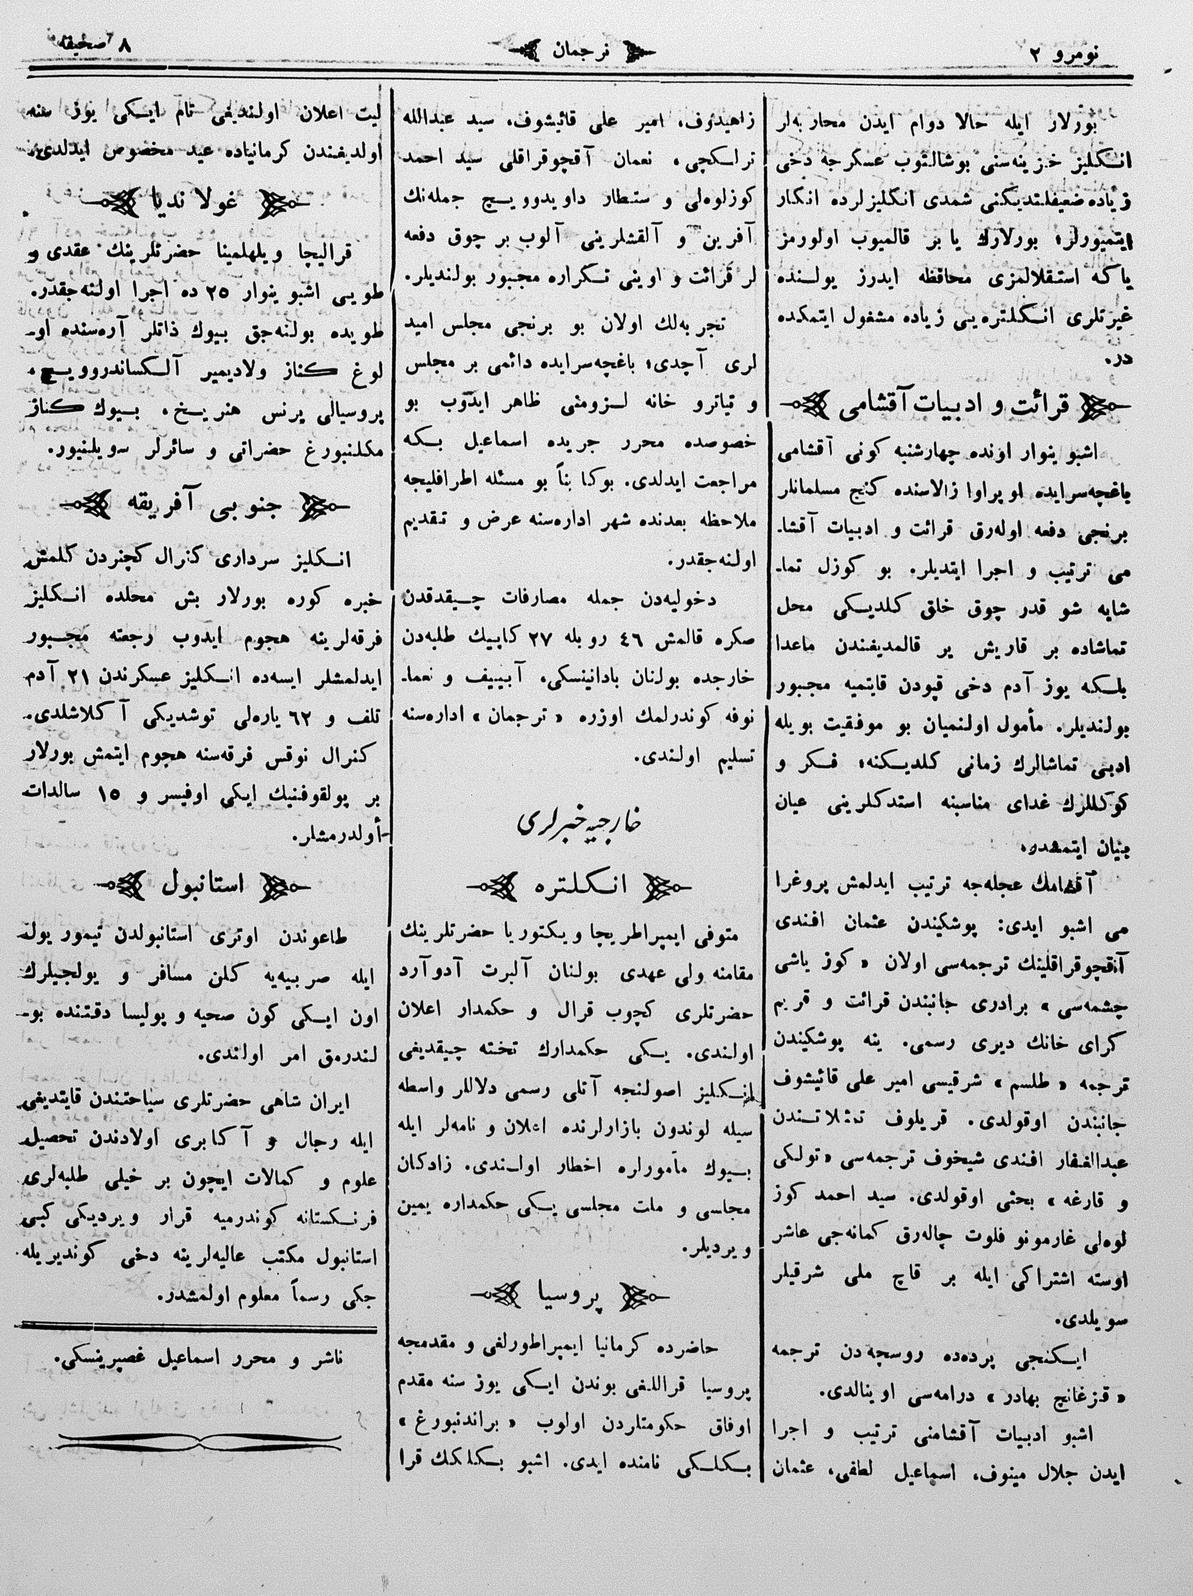 نومرو ٢
ترجمان
٨ صحیفه
بورلار ایله حالا دوام ایدن محاربەلر
انكلیز خزینەسنی بوشالتوب عسكرجه دخی
زیاده ضعیفلتدیكنی شمدی انكلیزلرده انكار
ایتمیورلر؛ بورلارك یا بر قالمیوب اولورمز
یاكه استقلالمزی محافظه ایدرز یولنده
غیرتلری انكلترەیی زیاده مشغول ایتمكده
در.
قرائت و ادبیات آقشامی
اشبو ینوار اونده چهارشنبه كونی آقشامی
باغچەسرایده اوپراوا زالاسنده كنج مسلمانلر
برنجی دفعه اولەرق قرائت و ادبیات آقشا۔
می ترتیب و اجرا ایتدیلر. بو كوزل تما۔
شایه شو قدر چوق خلق كلدیكی محل
تماشاده بر قاریش یر قالمدیغندن ماعدا
بلكه یوز آدم دخی قپودن قایتمیه مجبور
بولندیلر. مأمول اولنمیان بو موفقیت بویله
ادبی تماشالرك زمانی كلدیكنه؛ فكر و
كوكللرك غدای مناسبنه استدكلرینی عیان
بیان ایتمەدر.
آقشامك عجلەجه ترتیب ایدلمش پروغرا
می اشبو ایدی: پوشكیندن عثمان افندی
آقچوقراقلینك ترجمەسی اولان « كوز یاشی
چشمەسی » برادری جانبندن قرائت و قریم
كرای خانك دیری رسمی. ینه پوشكیندن
ترجمه « طلسم » شرقیسی امیر علی قائیشوف
جانبندن اوقولدی. قریلوف تمثلاتندن
عبدالغفار افندی شیخوف ترجمەسی « تولكی
و قارغه » بحثی اوقولدی. سید احمد كوز
لوەلی غارمونو فلوت چالەرق كمانەجی عاشر
اوسته اشتراكی ایله بر قاچ ملی شرقیلر
سویلدی.
ایكنجی پردەده روسچەدن ترجمه
« قزغانچ بهادر » درامەسی اوینالدی.
اشبو ادبیات آقشامنی ترتیب و اجرا
ایدن جلال مینوف، اسماعیل لطفی، عثمان
زاهیدوف، امیر علی قائیشوف، سید عبدالله
ترلكچی، نعمان آقچوقراقلی سید احمد
كوزلوەلی و ستطار داویدوویچ جملەنك
آفرین و آلقشلرینی آلوب بر چوق دفعه
لر قرائت و اوینی تكراره مجبور بولندیلر.
تجربەلك اولان بو برنجی مجلس امید
لری آچدی؛ باغچەسرایده دائمی بر مجلس
و تیاترو خانه لزومنی ظاهر ایدوب بو
خصوصده محرر جریده اسماعیل بكه
مراجعت ایدلدی. بوكا بناً بو مسئله اطرافلیجه
ملاحظه بعدنده شهر ادارەسنه عرض و تقدیم
اولنەجقدر.
دخولیەدن جمله مصارفات چیقدقدن
صكره قالمش ٤٦ روبله ٢٧ كاپیك طلبەدن
خارجده بولنان بادانینسكی، آبییف و نعما۔
نوفه كوندرلمك اوزره « ترجمان » ادارەسنه
تسلیم اولندی.
خارجیه خبرلری
انكلتره
متوفی ایمپراطریچا ویكتوریا حضرتلرینك
مقامنه ولی عهدی بولنان آلبرت آدوآرد
حضرتلری كچوب قرال و حكمدار اعلان
اولندی. یكی حكمدارك تخته چیقدیغی
انكلیز اصولنجه آتلی رسمی دلاللر واسطه
سیله لوندون بازارلرنده اعلان و نامەلر ایله
بیوك مأمورلره اخطار اولندی. زادكان
مجلسی و ملت مجلسی یكی حكمداره یمین
ویردیلر.
پروسیا
حاضرده كرمانیا ایمپراطورلغی و مقدمجه
پروسیا قراللغی بوندن ایكی یوز سنه مقدم
اوفاق حكومتلردن اولوب « براندنبورغ »
بكلكی نامنده ایدی. اشبو بكلكك قرا
لیت اعلان اولندیغی تام ایكی یوز سنه
اولدیغندن كرمانیاده عید مخصوص ایدلدی.
غولاندیا
قرالیچا ویلهلمینا حضرتلرینك عقدی و
طویی اشبو ینوار ٢٥ ده اجرا اولنەجقدر.
طویده بولنەجق بیوك ذاتلر آرەسنده او۔
لوغ كناز ولادیمیر آلكساندروویچ،
پروسیالی پرنس هنریخ، بیوك كناز
مكلنبورغ حضراتی و سائرلر سویلنیور.
جنوبی آفریقه
انكلیز سرداری كنرال كچنردن كلمش
خبره كوره بورلار بش محلده انكلیز
فرقەلرینه هجوم ایدوب رجعته مجبور
ایدلمشلر ایسەده انكلیز عسكرندن ٢١ آدم
تلف و ٦٢ یارەلی توشدیكی آكلاشلدی.
كنرال نوقس فرقەسنه هجوم ایتمش بورلار
بر پولقوفنیك ایكی اوفیسر و ١٥ سالدات
أولدرمشلر.
استانبول
طاعوندن اوتری استانبولدن تیمور یول
ایله صربییەیه كلن مسافر و یولجیلرك
اون ایكی كون صحیه و پولیسا دقتنده بو۔
لندرمق امر اولندی.
ایران شاهی حضرتلری سیاحتندن قایتدیغی
ایله رجال و آكابری اولادندن تحصیل
علوم و كمالات ایچون بر خیلی طلبەلری
فرنكستانه كوندرمیه قرار ویردیكی كبی
استانبول مكتب عالیەلرینه دخی كوندیریله
جكی رسماً معلوم اولمشدر.
ناشر و محرر اسماعیل غصپرینسكی.